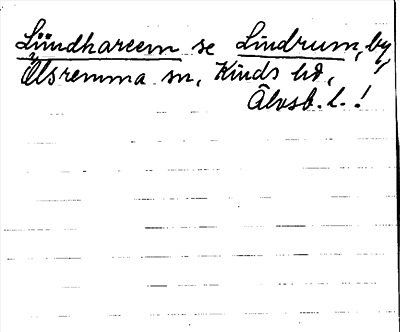 Lündhareem se Lindrum, by,
Ölsremma sn, Kinds hd,
Älvsb. l. !